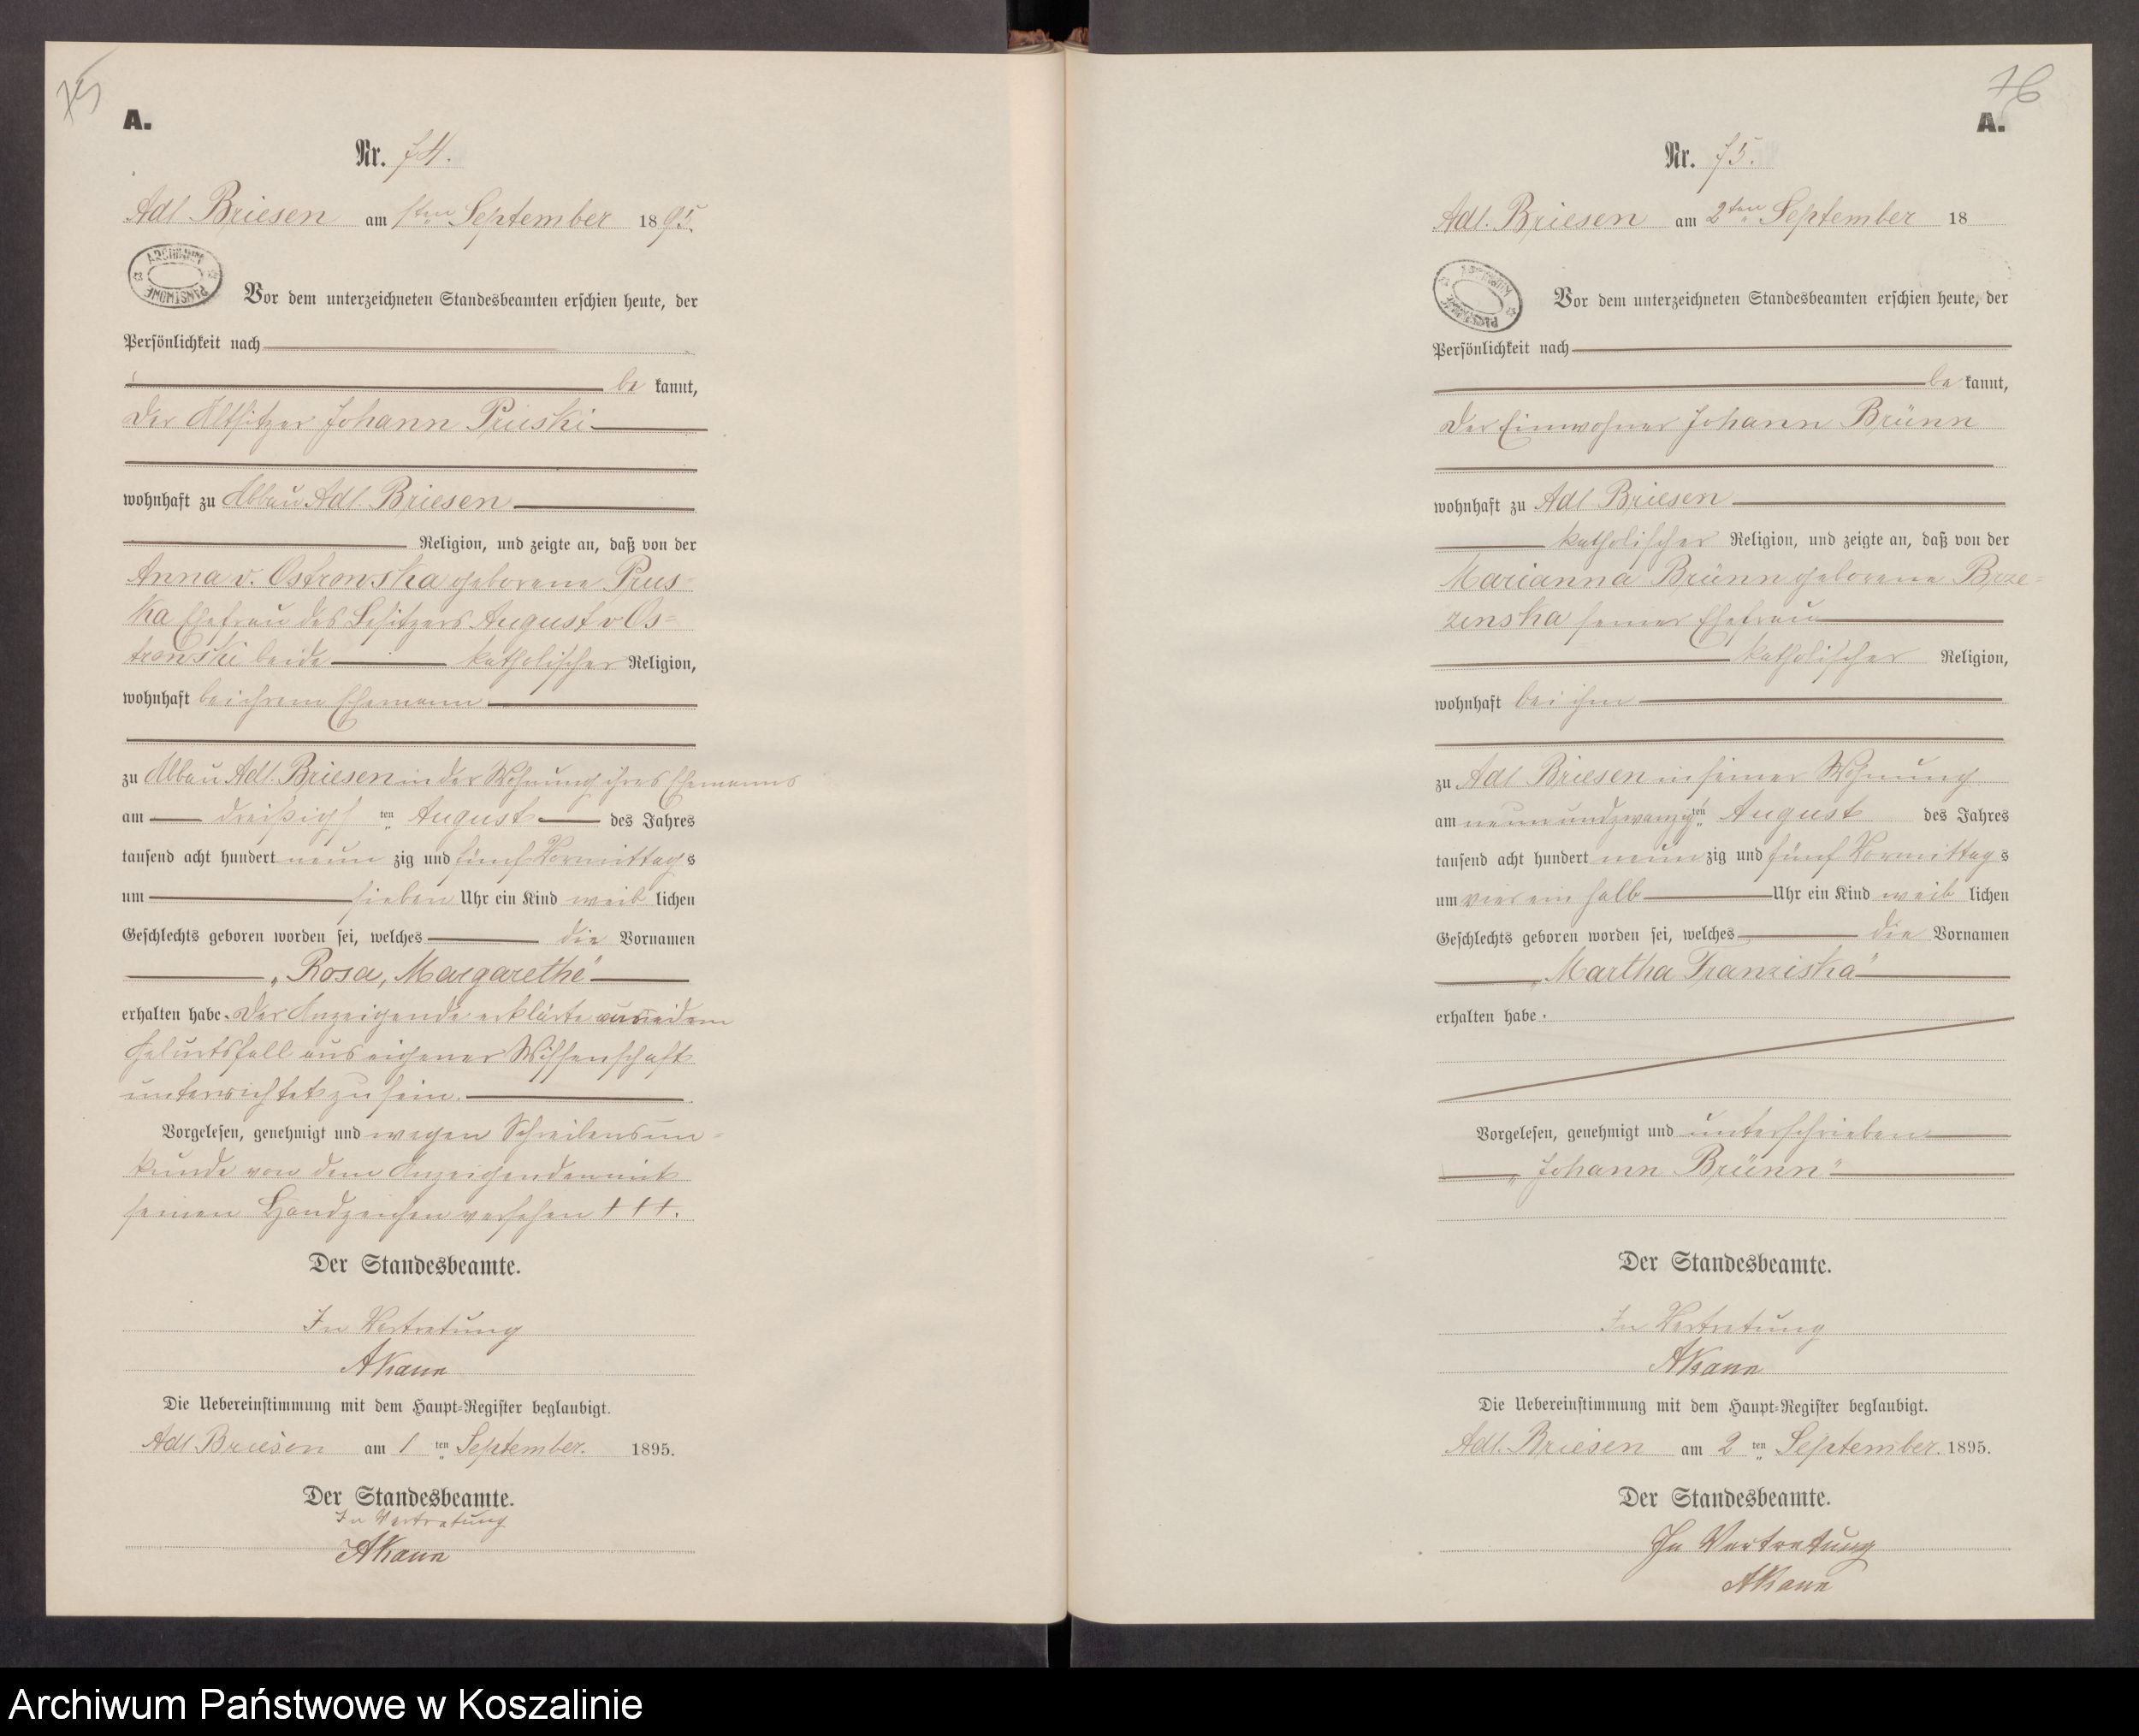 75
A.
Nr. 74.
Adl. Briesen am 1ten September 1895.
ARCHIWUM PAŃSTWOWE
Vor dem unterzeichneten Standesbeamten erschien heute, der
Persönlichkeit nach
be kannt,
der Altsitzer Johann Prüski
wohnhaft zu Abbau Adl. Briesen
Religion, und zeigte an, daß von der
Anna v. Ostrowska geborene Prus=
ka Ehefrau des Besitzers August v Os=
trowski beide katholischer Religion,
wohnhaft bei ihrem Ehemann
zu Abbau Adl. Briesen in der Wohnung ihres Ehemanns
am dreißigsten August des Jahres
tausend acht hundert neun zig und fünf Vormittags
um sieben Uhr ein Kind weib lichen
Geschlechts geboren worden sei, welches die Vornamen
„Rosa, Margarethe"
erhalten habe. Der Anzeigende erklärte von dem
Geburtsfall aus eigener Wissenschaft
unterrichtet zu sein.
Vorgelesen, genehmigt und wegen Schreibensun=
kunde von dem Anzeigenden mit
seinen Handzeichen versehen +++.
Der Standesbeamte.
In Vertretung
AKann
Die Uebereinstimmung mit dem Haupt=Register beglaubigt.
Adl. Briesen am 1 ten September. 1895.
Der Standesbeamte.
In Vertretung
AKann
76
A.
Nr. 75.
Adl. Briesen am 2ten September 18
ARCHIWUM PAŃSTWOWE
Vor dem unterzeichneten Standesbeamten erschien heute, der
Persönlichkeit nach
be kannt,
der Einwohner Johann Brünn
wohnhaft zu Adl Briesen
katholischer Religion, und zeigte an, daß von der
Marianna Brünn geborene Brze=
zinska seiner Ehefrau
katholischer Religion,
wohnhaft bei ihm
zu Adl Briesen in seiner Wohnung
am neunundzwanzigten August des Jahres
tausend acht hundert neun zig und fünf Vormittags
um vier ein halb Uhr ein Kind weib lichen
Geschlechts geboren worden sei, welches die Vornamen
„Martha Franziska"
erhalten habe.
Vorgelesen, genehmigt und unterschrieben
„Johann Brünn"
Der Standesbeamte.
In Vertretung
AKann
Die Uebereinstimmung mit dem Haupt=Register beglaubigt.
Adl. Briesen am 2 ten September. 1895.
Der Standesbeamte.
In Vertretung
AKann
Archiwum Państwowe w Koszalinie